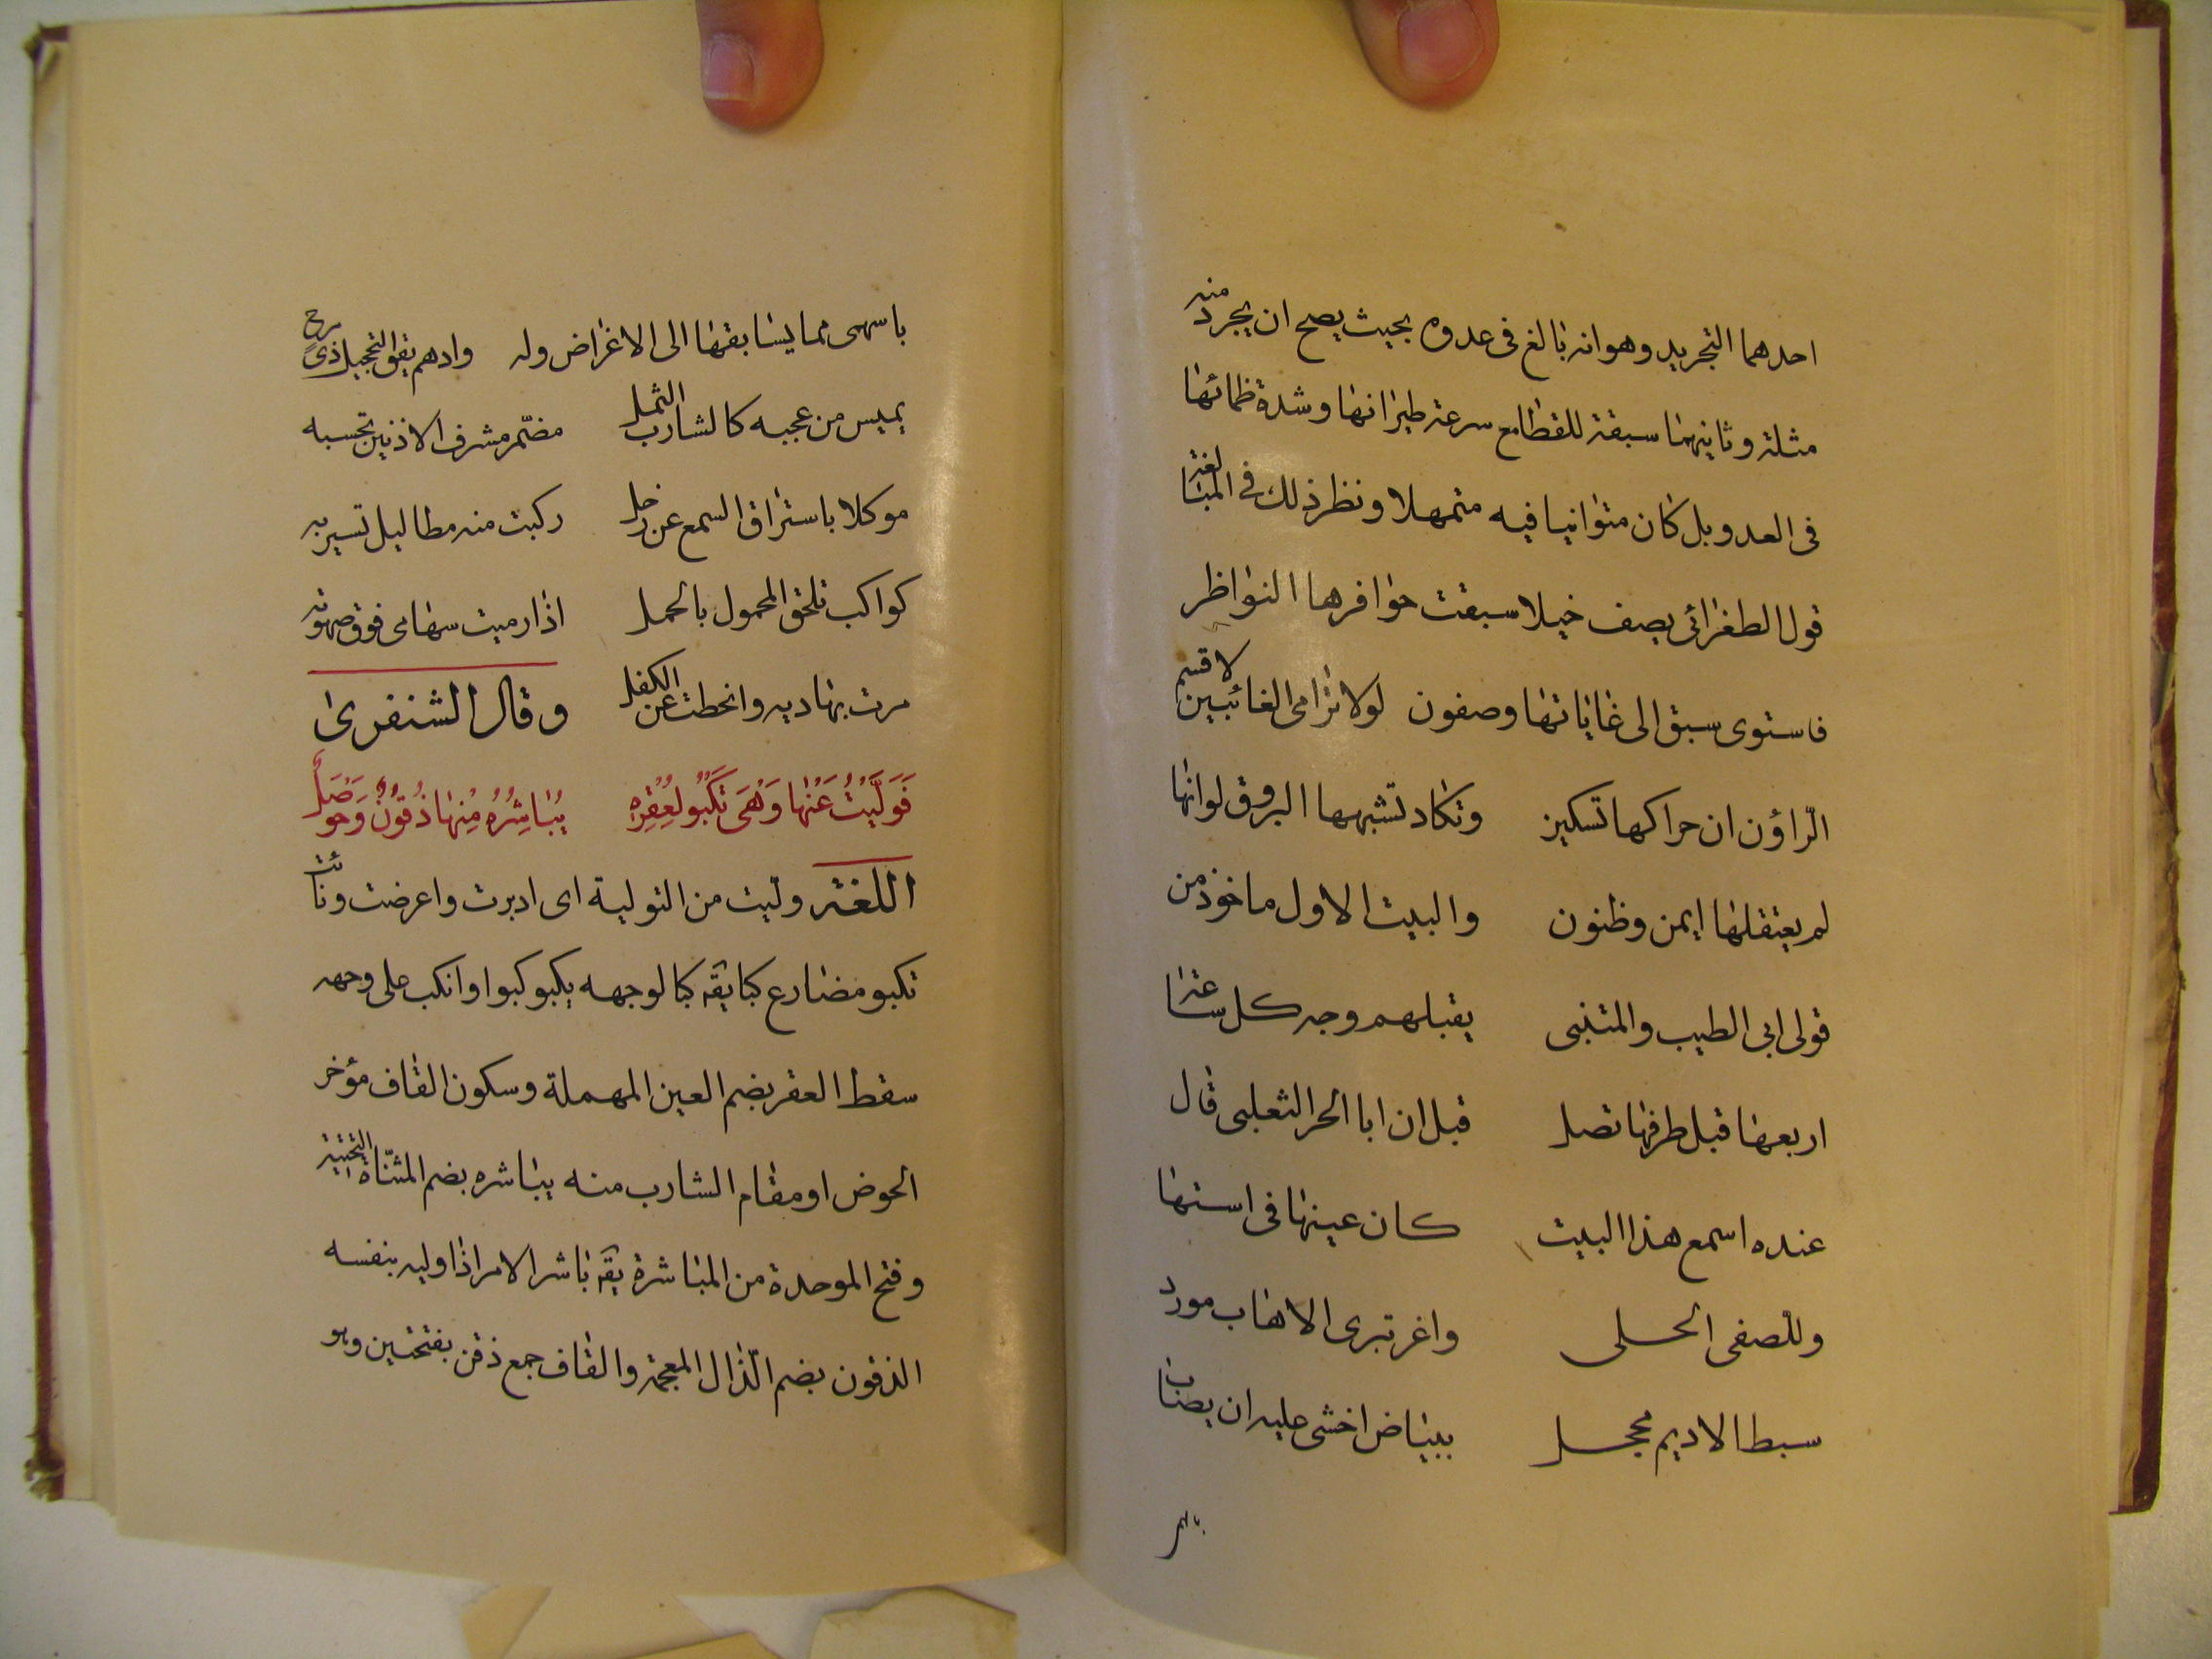 احدهما التجريد وهو انه بالغ فى عدوه بحيث يصح ان يجرد منه
مثله وثانيهما سبقة للقطا مع سرعة طيرانها وشدة ظمائها
فى العدو بل كان متوانيا فيه متمهلا ونظر ذلك فى المبالغة
قول الطغرائى يصف خيلا سبقت حوافرها النواظر
فاستوى سبق الى غاياتها وصفون لولا ترامى الغائبين لاقسم
الراؤن ان حراكها تسكين وتكاد تشبهها البروق لو انها
لم يعتقلها ايمن وظنون والبيت الاول ماخوذ من
قولى ابى الطيب والمتنبى يقبلهم وجه كل سا عة
اربعها قبل طرفها تصل قبل ان ابا الحر الثعلبى قال
عنده اسمع هذا البيت كان عينها فى استها
وللصفى الحلى واغر تبرى الاهاب مورد
سبط الاديم محجل ببياض اخشى عليه ان يصاب
باسهى مما يسابقها الى الاغراض وله وادهم يقق التحجيل ذى مرح
يميس من عجبه كالشارب الثمل مضمر مشرف الاذنين تحسبه
موكلا باستراق السمع عن زحل ركبت منه مطا ليل تسير به
كواكب تلحق المحمول بالحمل اذا رميت سهامى فوق صهوته
مرت بهاديه وانحطت عن الكفل وقال الشنفرى
فَوَلَّيْتُ عَنْها وَهْىَ تَكْبُو لِعُقْرِهِ يُباشِرُهُ مِنْها ذُقُونٌ وَحَوْصَلُ
اللغة وليت من التولية اى ادبرت واعرضت ونائت
تكبو مضارع كبا يقه كبا لوجهه يكبو كبوا وانكب على وجهه
سقط العقر بضم العين المهملة وسكون القاف مؤخر
الحوض او مقام الشارب منه يباشره بضم المثناة التحتية
وفتح الموحدة من المباشرة يقه باشر الامر اذا وليه بنفسه
الذقون بضم الذال المعجمة والقاف جمع ذقن بفتحتين وهو